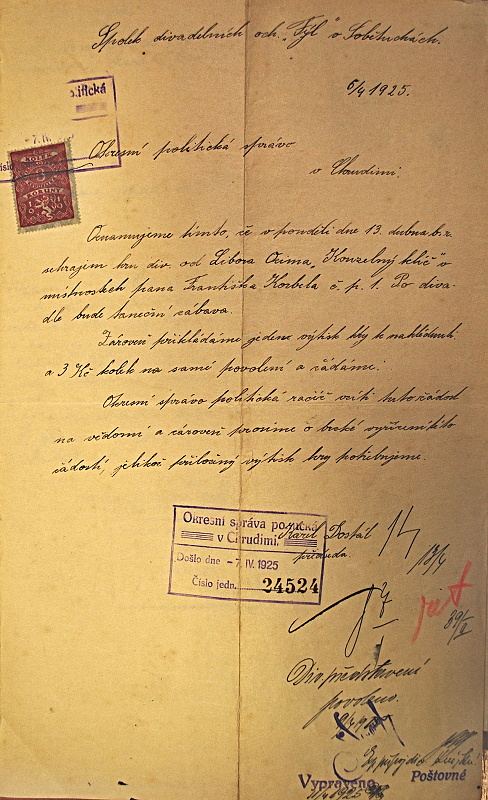 Spolek divadelních och. „Tyl“ v Sobětuchách.
6/4 1925.
itická
- 7. IV.
KOLEK
KORUNY
Okresní politická správo
v Chrudimi.
Oznamujeme tímto, že v pondělí dne 13. dubna b.r.
sehrajem hru div. od Libora Ocima, „Kouzelný klíč“ v
místnostech pana Františka Korbela č. p. 1. Po diva-
dle bude taneční zábava.
Zároveň přikládáme jeden výtisk hry k nahlédnutí
a 3 Kč kolek na samé povolení a žádáme:
Okresní správo politická račiž vzíti tuto žádost
na vědomí a zároveň prosíme o brzké vyřízení této
žádosti, jelikož přiložený výtisk hry potřebujeme.
Okresní správa politická
v Chrudimi.
Došlo dne - 7. IV. 1925
Číslo jedn. 24524
Karel Dostál
předseda.
13/4
Div. představení
povoleno.
Vypraveno
Poštovné